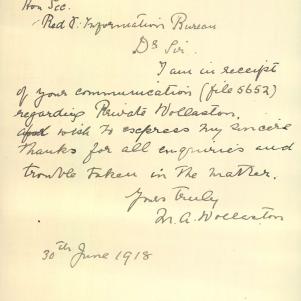 Hon Sec.
Red X. Information Bureau
Dr Sir.
I am in receipt
of your communication (file 5652)
regarding Private Wollaston.
wish to express my sincere
thanks for all enquiries and
trouble taken in the matter.
Yours truly
M. A. Wollaston
30th June 1918